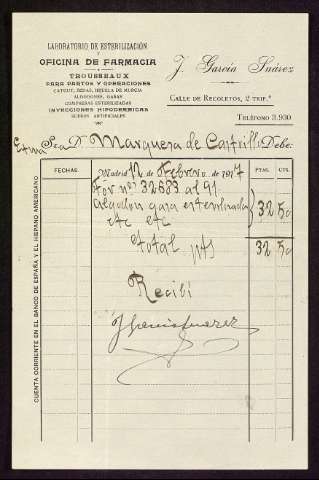 LABORATORIO DE ESTERILIZACIÓN
Y
OFICINA DE FARMACIA
TROUSSEAUX
PARA PARTOS Y OPERACIONES
CATGUT, SEDAS, HIJUELA DE MURCIA
ALGODONES, GASAS
COMPRESAS ESTERILIZADAS
INYECCIONES HIPODÉRMICAS
SUEROS ARTIFICIALES
J. García Suárez
CALLE DE RECOLETOS, 2 TRIP.º
TELÉFONO 3.930
Exma Sra Dª Marquesa de Castrillo Debe:
FECHAS Madrid 12 de Febrero de 1917 PTAS. CTS.
Por nº 32683 al 91
algodon gasa esterilizada
etc etc 32 50
total pts 32 50
Recibí
J García Suarez
CUENTA CORRIENTE EN EL BANCO DE ESPAÑA Y EL HISPANO AMERICANO